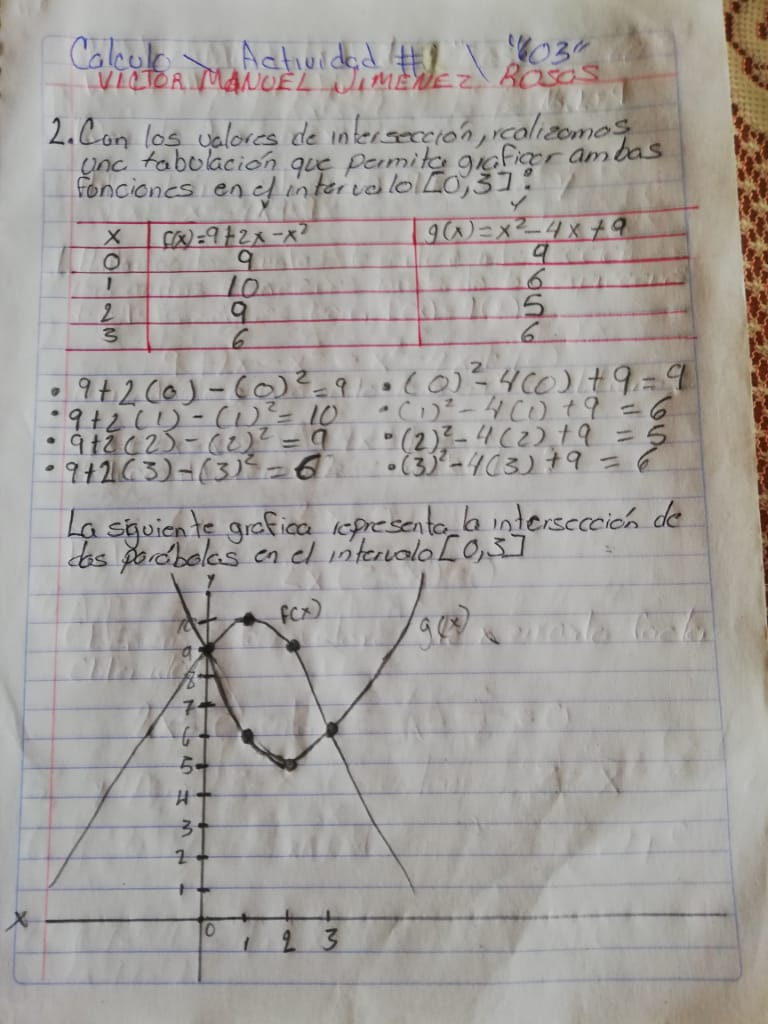 Calculo \ Actividad #1 \ "603"
VICTOR MANUEL JIMENEZ ROSAS
2. Con los valores de intersección, realizamos
una tabulación que permita graficar ambas
funciones en el intervalo [0,3]:
Y Y
X f(x)=9+2x-x² g(x)=x²-4x+9
0 9 9
1 10 6
2 9 5
3 6 6
• 9+2(0)-(0)²=9 • (0)²-4(0)+9=9
• 9+2(1)-(1)²=10 • (1)²-4(1)+9=6
• 9+2(2)-(2)²=9 • (2)²-4(2)+9=5
• 9+2(3)-(3)²=6 • (3)²-4(3)+9=6
La siguiente grafica representa la intersección de
dos parábolas en el intervalo [0,3]
Y
10 f(x)
g(x)
9
8
7
6
5
4
3
2
1
X
0 1 2 3